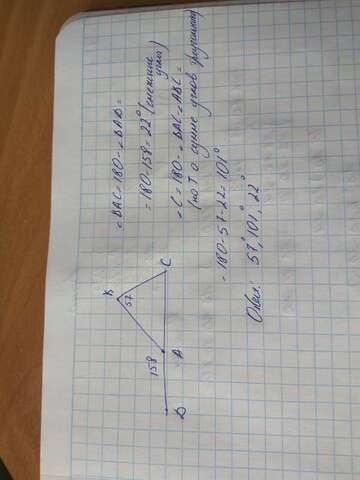 ∠BAC=180-∠BAD=
=180-158=22° (смежные
углы)
∠C=180-∠BAC-∠ABC=
(по т. о сумме углов треугольника)
=180-57-22=101°
Ответ: 57°, 101°, 22°
B
57
C
158
A
D